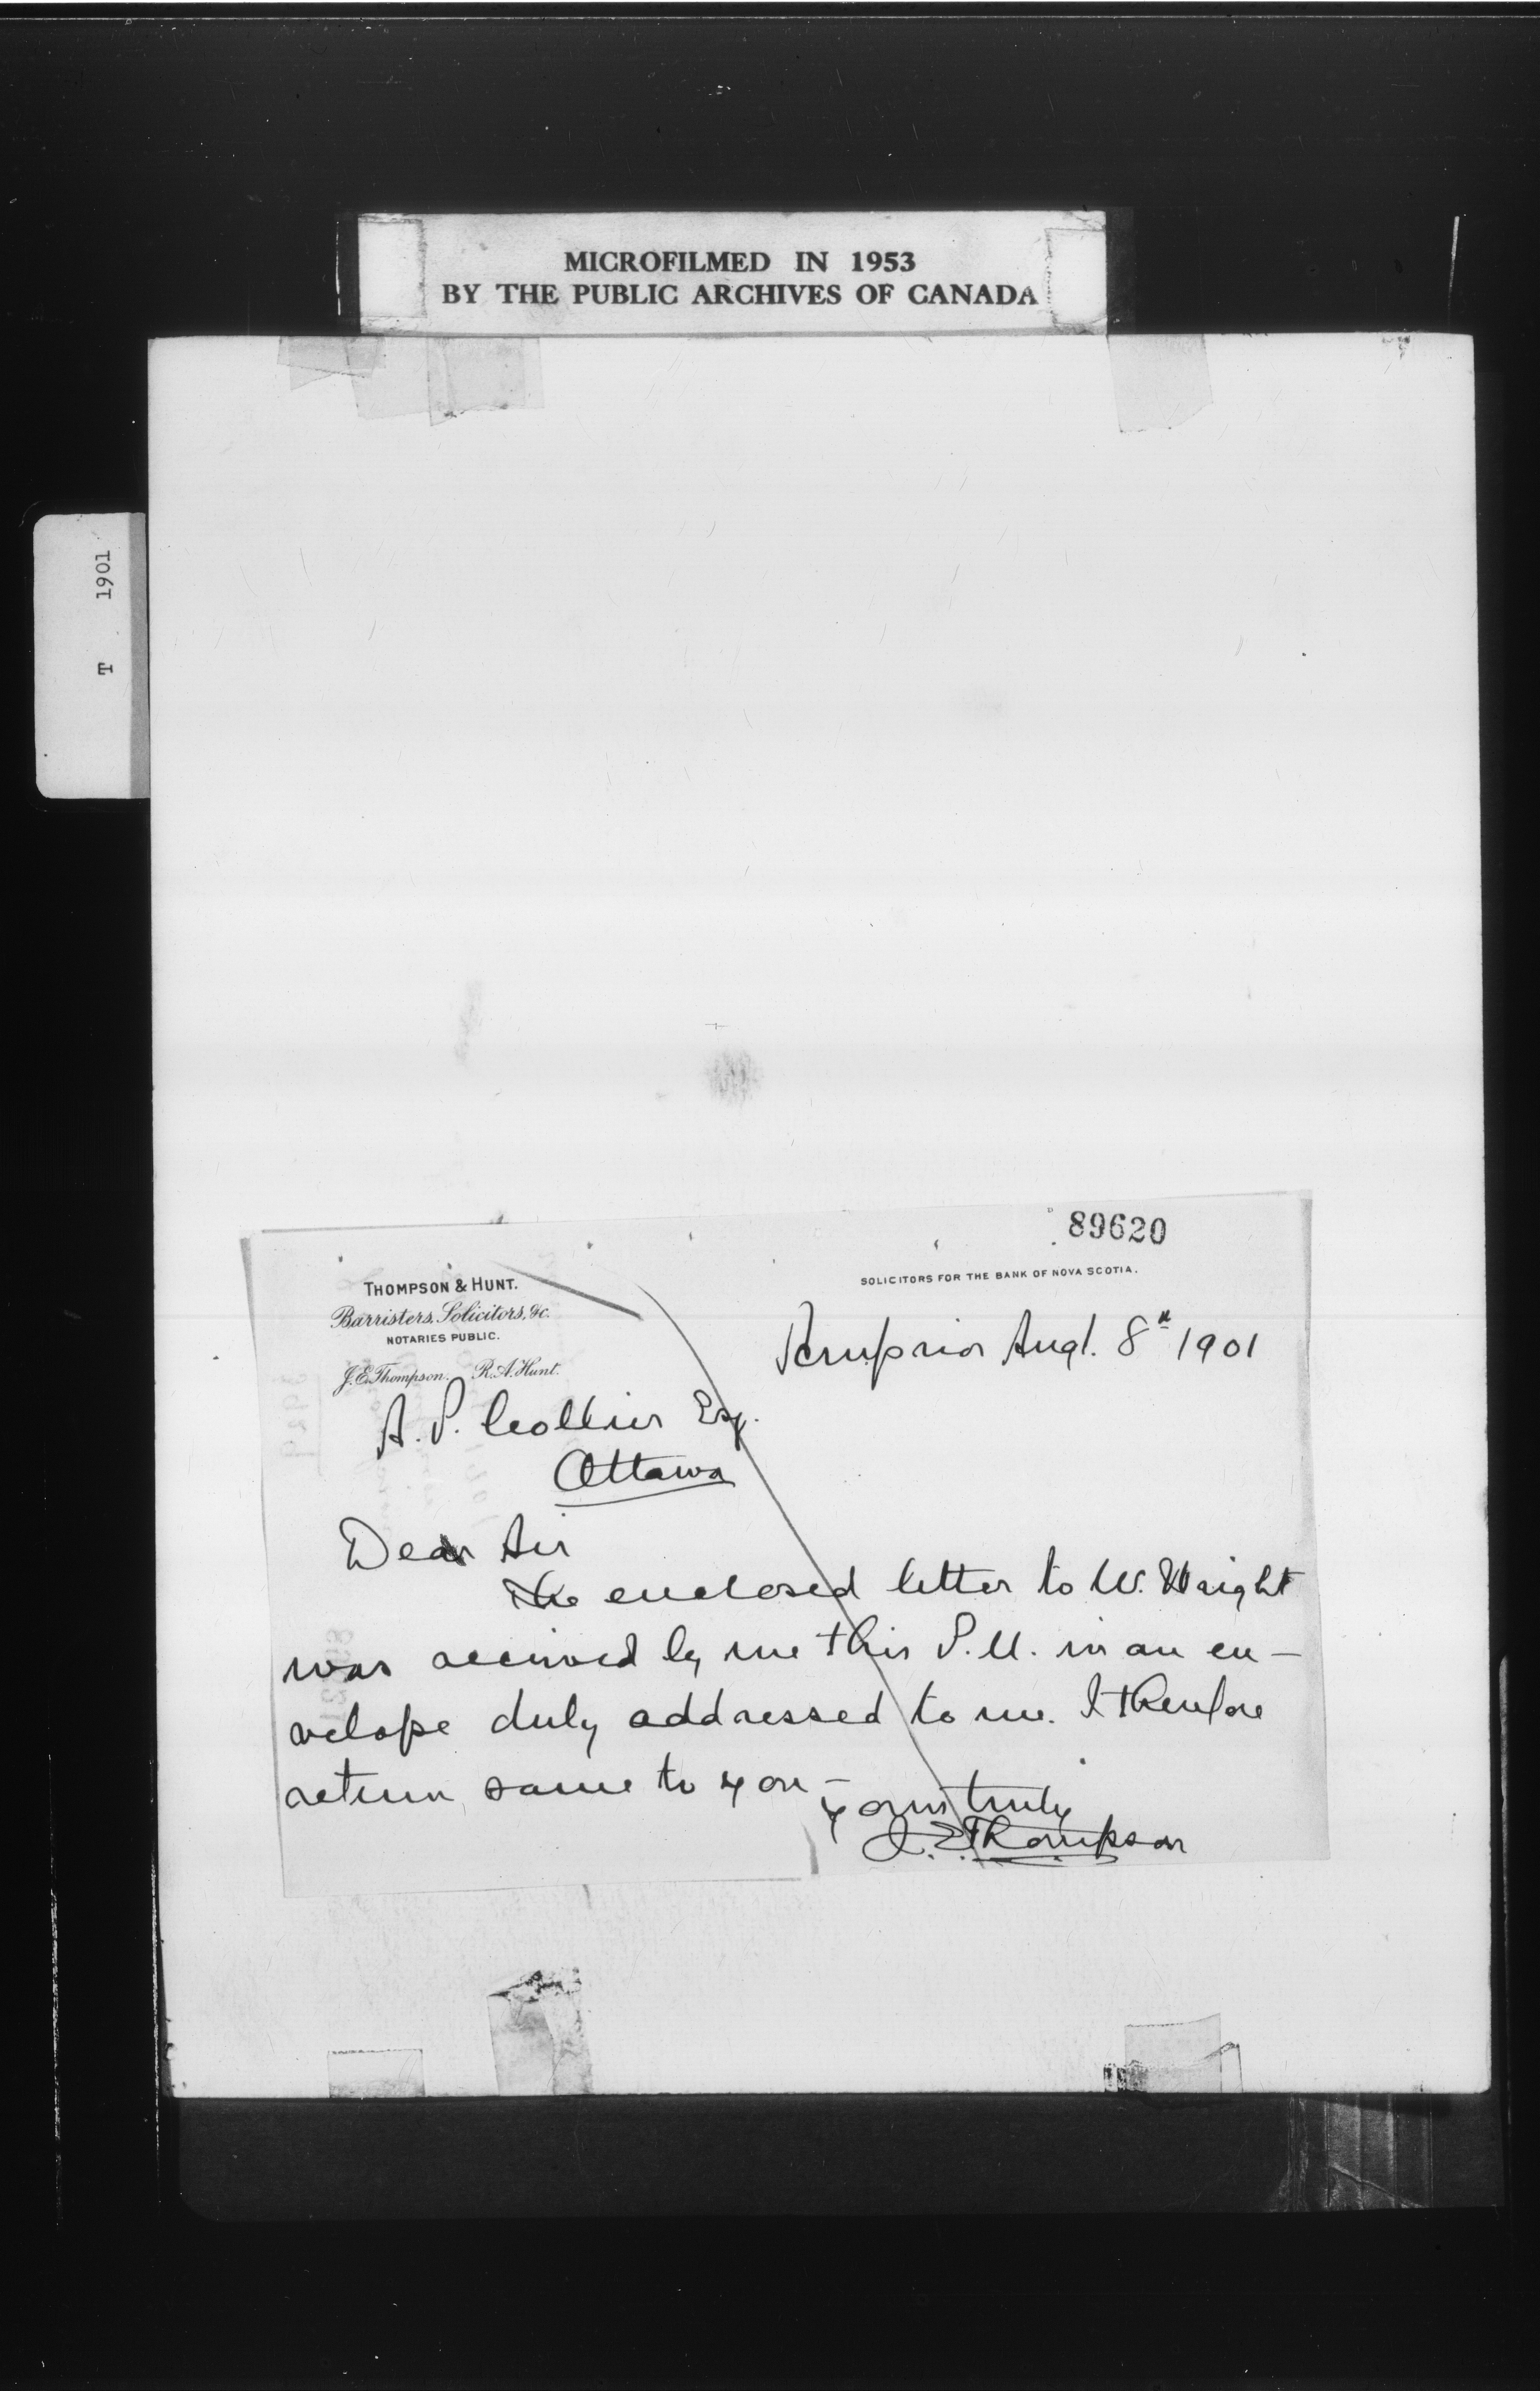 MICROFILMED IN 1953
BY THE PUBLIC ARCHIVES OF CANADA
T 1901
89620
THOMPSON & HUNT.
Barristers, Solicitors, &c.
NOTARIES PUBLIC.
J.E. Thompson. R.A. Hunt.
SOLICITORS FOR THE BANK OF NOVA SCOTIA.
Arnprior Augt. 8th 1901
A. P. Collier Esq.
Ottawa
Dear Sir
The enclosed letter to W. Wright
was received by me this P.M. in an en-
velope duly addressed to me. I therefore
return same to you -
yours truly
J. E. Thompson